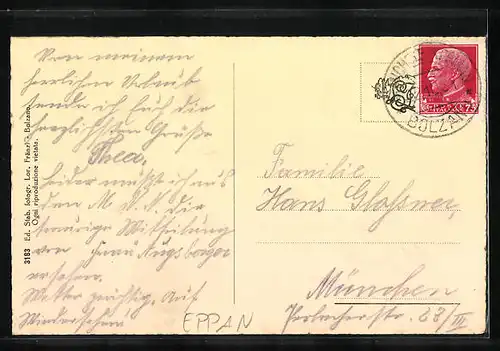 Von meinem
herrlichen Urlaub
sende ich Euch die
herzlichsten Grüße
Thea.
Leider mußt ich aus
den M. N. N. die
traurige Mitteilung
von Frau Augsberger
ersehen.
Wetter prächtig. Auf
Wiedersehen!
3183 Ed. Stab. fotogr. Lor. Fränzl - Bolzano
Ogni riproduzione vietata.
EPPAN
BOLZANO
Familie
Hans Glossner,
München
Perlacherstr. 28/III